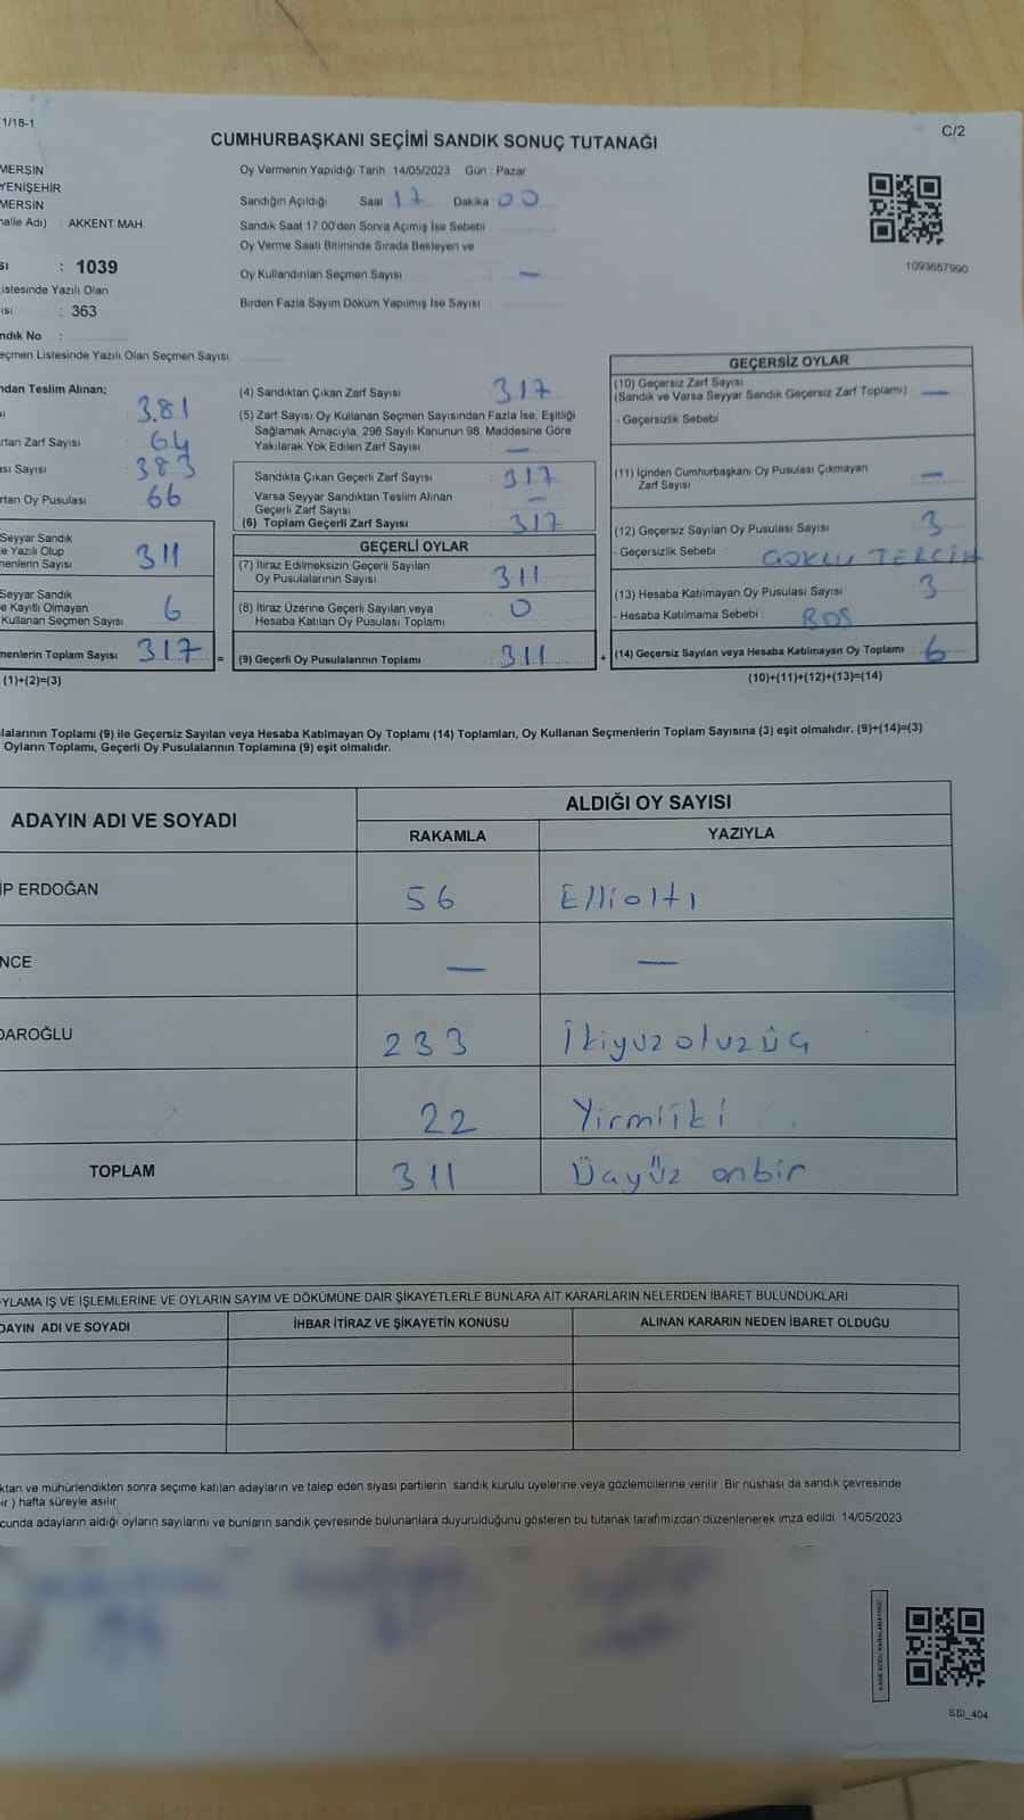 1/18-1
C/2
CUMHURBAŞKANI SEÇİMİ SANDIK SONUÇ TUTANAĞI
MERSİN
YENİŞEHİR
MERSİN
halle Adı) : AKKENT MAH.
sı : 1039
istesinde Yazılı Olan
ısı : 363
ndık No :
eçmen Listesinde Yazılı Olan Seçmen Sayısı
Oy Vermenin Yapıldığı Tarih : 14/05/2023 Gün : Pazar
Sandığın Açıldığı Saat 17 Dakika 00
Sandık Saat 17:00'den Sonra Açımış İse Sebebi
Oy Verme Saati Bitiminde Sırada Bekleyen ve
Oy Kullandırılan Seçmen Sayısı —
Birden Fazla Sayım Döküm Yapılmış İse Sayısı
1093657990
ndan Teslim Alınan;
381
rtan Zarf Sayısı 64
ası Sayısı 383
rtan Oy Pusulası 66
Seyyar Sandık
e Yazılı Olup
menlerin Sayısı 311
Seyyar Sandık
e Kayıtlı Olmayan
Kullanan Seçmen Sayısı 6
menlerin Toplam Sayısı 317 =
(1)+(2)=(3)
(4) Sandıktan Çıkan Zarf Sayısı 317
(5) Zarf Sayısı Oy Kullanan Seçmen Sayısından Fazla İse; Eşitliği
Sağlamak Amacıyla, 298 Sayılı Kanunun 98. Maddesine Göre
Yakılarak Yok Edilen Zarf Sayısı —
Sandıkta Çıkan Geçerli Zarf Sayısı 317
Varsa Seyyar Sandıktan Teslim Alınan
Geçerli Zarf Sayısı —
(6) Toplam Geçerli Zarf Sayısı 317
GEÇERLİ OYLAR
(7) İtiraz Edilmeksizin Geçerli Sayılan
Oy Pusulalarının Sayısı 311
(8) İtiraz Üzerine Geçerli Sayılan veya
Hesaba Katılan Oy Pusulası Toplamı 0
(9) Geçerli Oy Pusulalarının Toplamı 311 +
GEÇERSİZ OYLAR
(10) Geçersiz Zarf Sayısı
(Sandık ve Varsa Seyyar Sandık Geçersiz Zarf Toplamı) —
- Geçersizlik Sebebi
(11) İçinden Cumhurbaşkanı Oy Pusulası Çıkmayan
Zarf Sayısı —
(12) Geçersiz Sayılan Oy Pusulası Sayısı 3
- Geçersizlik Sebebi ÇOKLU TERCİH
(13) Hesaba Katılmayan Oy Pusulası Sayısı 3
- Hesaba Katılmama Sebebi BOŞ
(14) Geçersiz Sayılan veya Hesaba Katılmayan Oy Toplamı 6
(10)+(11)+(12)+(13)=(14)
lalarının Toplamı (9) ile Geçersiz Sayılan veya Hesaba Katılmayan Oy Toplamı (14) Toplamları, Oy Kullanan Seçmenlerin Toplam Sayısına (3) eşit olmalıdır. (9)+(14)=(3)
Oyların Toplamı, Geçerli Oy Pusulalarının Toplamına (9) eşit olmalıdır.
ADAYIN ADI VE SOYADI
ALDIĞI OY SAYISI
RAKAMLA YAZIYLA
İP ERDOĞAN 56 Ellialtı
NCE — —
DAROĞLU 233 İkiyuz otuzüç
22 Yirmiiki
TOPLAM 311 Üçyüz onbir
YLAMA İŞ VE İŞLEMLERİNE VE OYLARIN SAYIM VE DÖKÜMÜNE DAİR ŞİKAYETLERLE BUNLARA AİT KARARLARIN NELERDEN İBARET BULUNDUKLARI
DAYIN ADI VE SOYADI İHBAR İTİRAZ VE ŞİKAYETİN KONUSU ALINAN KARARIN NEDEN İBARET OLDUĞU
ktan ve mühürlendikten sonra seçime katılan adayların ve talep eden siyasi partilerin sandık kurulu üyelerine veya gözlemcilerine verilir. Bir nüshası da sandık çevresinde
ir ) hafta süreyle asılır.
cunda adayların aldığı oyların sayılarını ve bunların sandık çevresinde bulunanlara duyurulduğunu gösteren bu tutanak tarafımızdan düzenlenerek imza edildi. 14/05/2023
SSI_404